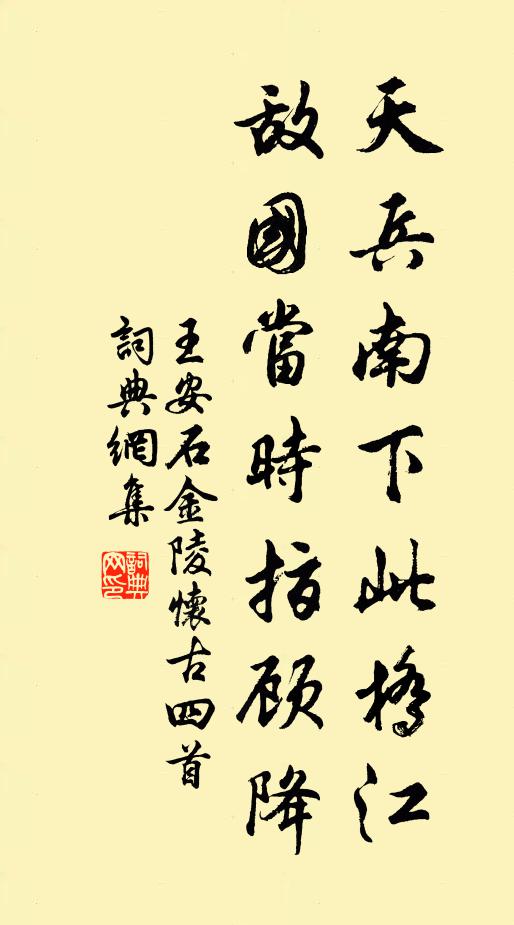 天兵南下此橋江
敌國當時指顾降
王安石金陵懷古四首
詞典網集
詞典网印